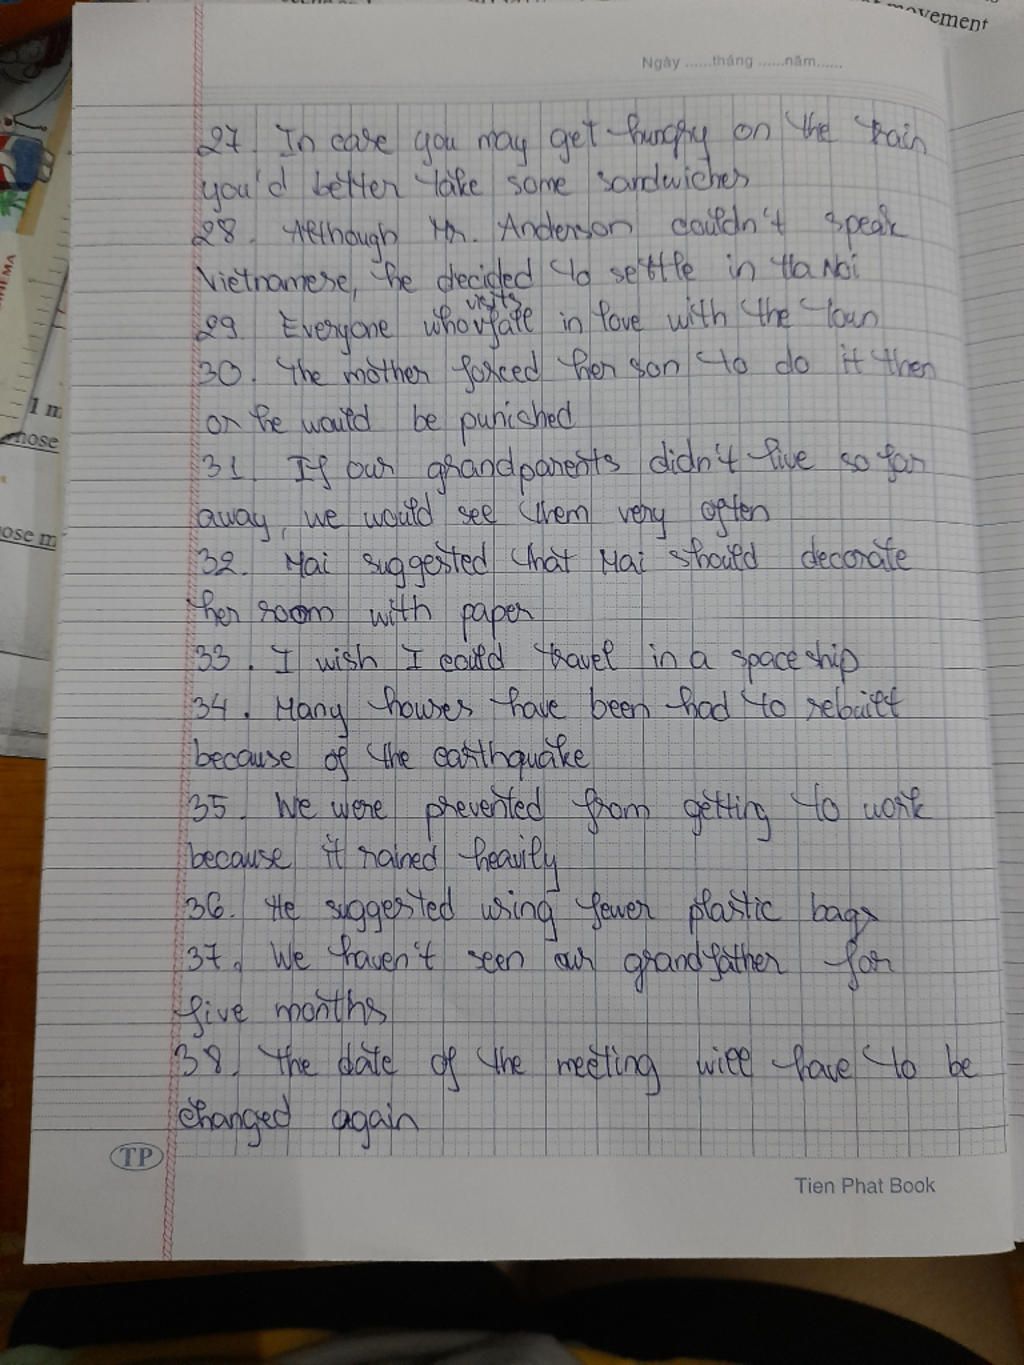 movement
Ngày ......tháng ......năm......
27. In case you may get hungry on the train
you'd better take some sandwiches
28. Although Mr. Anderson couldn't speak
Vietnamese, he decided to settle in Ha Noi
visits
29. Everyone who fall in love with the town
30. The mother forced her son to do it then
or he would be punished
31. If our grandparents didn't live so far
away, we would see them very often
32. Mai suggested that Mai should decorate
her room with paper
33. I wish I could travel in a space ship
34. Many houses have been had to rebuilt
because of the earthquake
35. We were prevented from getting to work
because it rained heavily
36. He suggested using fewer plastic bags
37. We haven't seen our grandfather for
five months
38. The date of the meeting will have to be
changed again
TP
Tien Phat Book